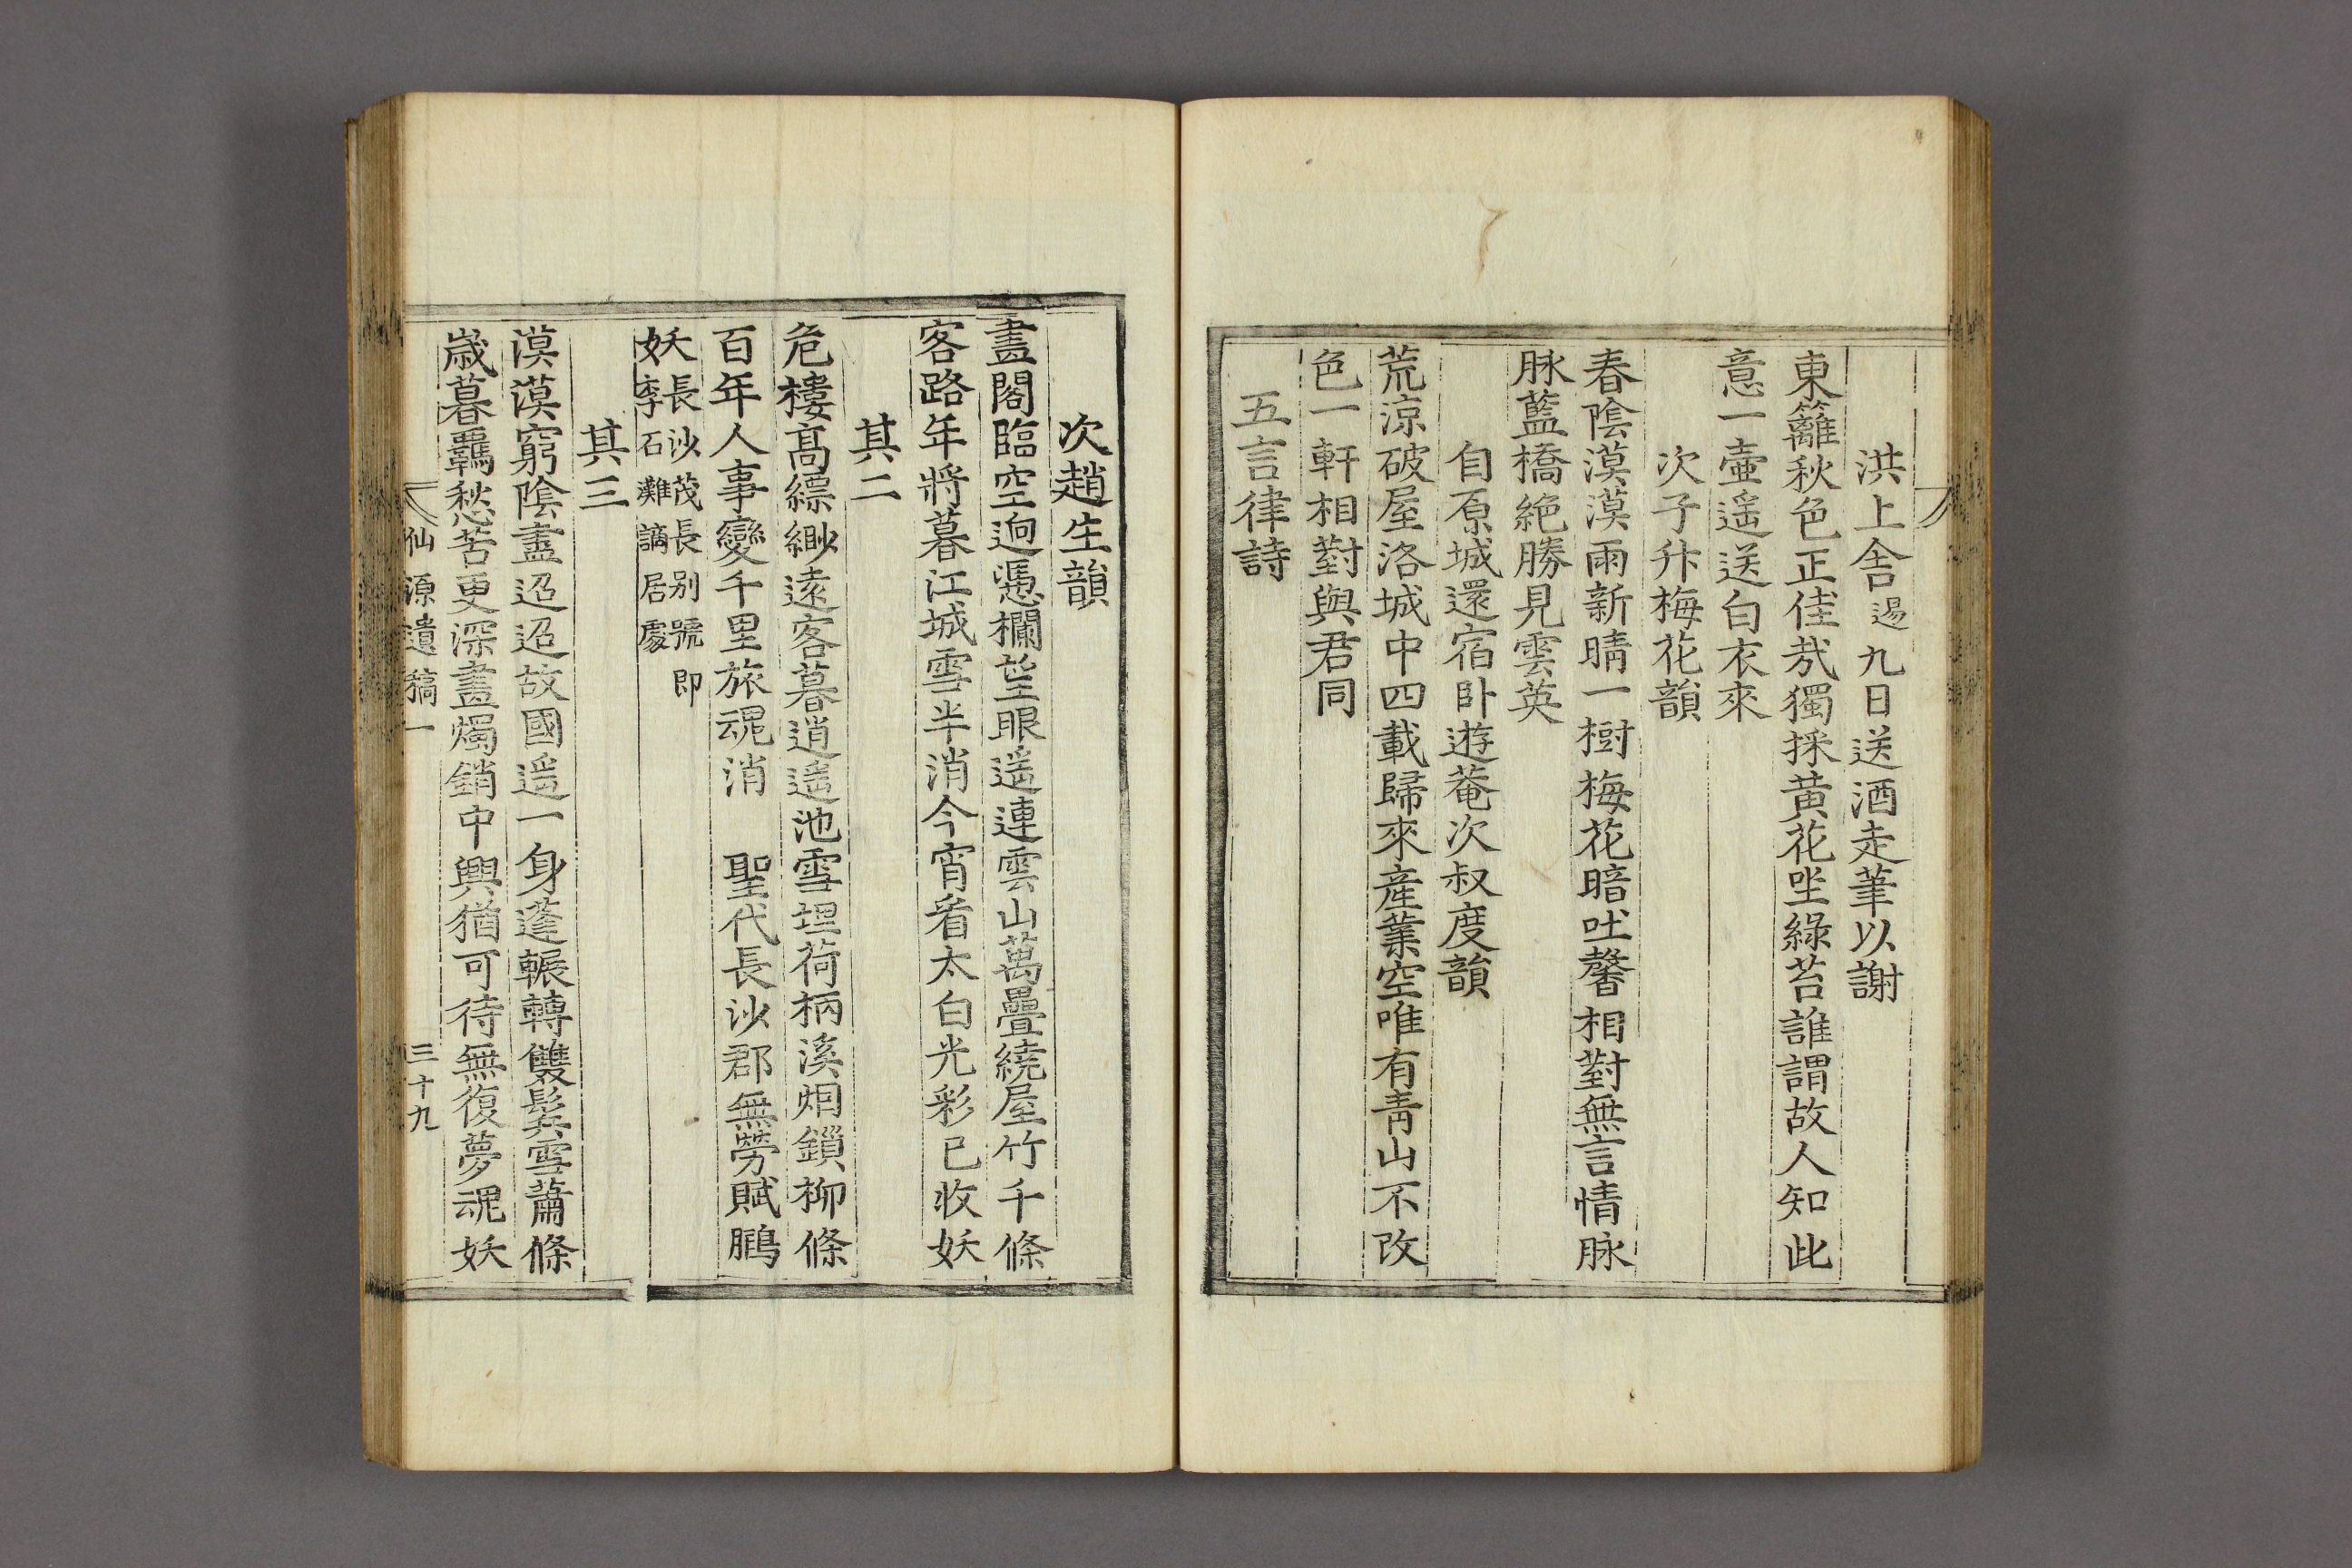 洪上舍逿九日送酒走筆以謝
東籬秋色正佳㢤獨採黄花坐綠苔誰謂故人知此
意一壷遥送白衣來
次子升梅花韻
春陰漠漠雨新晴一樹梅花暗吐馨相對無言情脉
脉藍橋絶勝見雲英
自原城還宿卧遊菴次叔度韻
荒凉破屋洛城中四載歸來産業空唯有靑山不改
色一軒相對與君同
五言律詩
次趙生韻
畫閣臨空逈憑欄望眼遥連雲山萬疊繞屋竹千條
客路年將暮江城雪半消今宵看太白光彩已收妖
其二
危樓髙縹緲遠客暮逍遥池雪埋荷柄溪烟鎖柳條
百年人事變千里旅魂消 聖代長沙郡無勞賦鵩
妖長沙茂長别號即李石灘謫居處
其三
漠漠窮陰盡迢迢故國遥一身蓬輾轉雙鬂雪蕭條
歲暮羈愁苦更深畫燭銷中興猶可待無復夢魂妖
仙源遺稿一 三十九